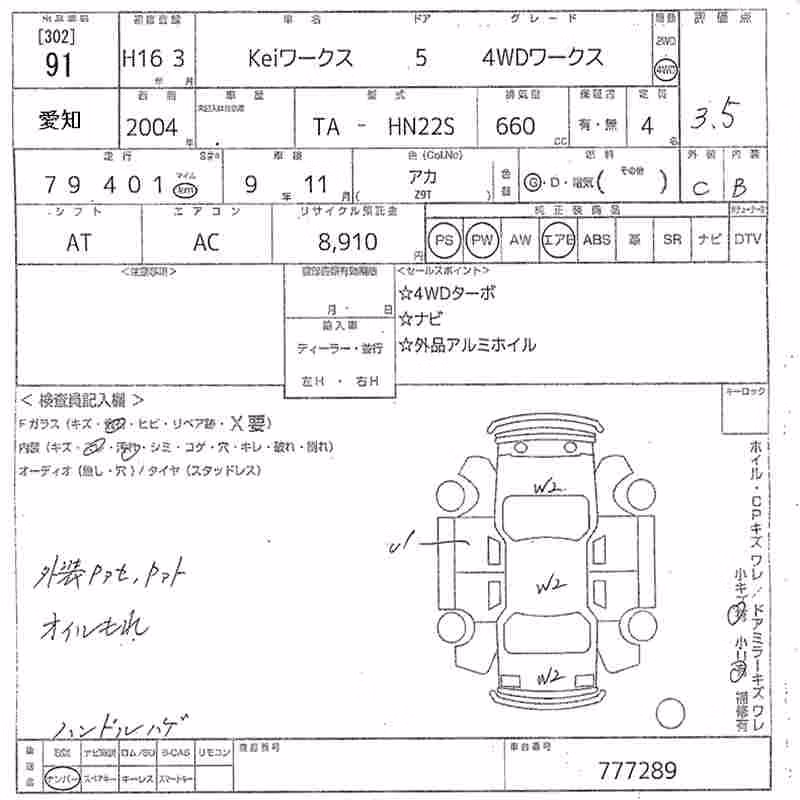 出品番号 初度登録 車名 ドア グレード 駆動 評価点
[302] 2WD
91 H16 3 Keiワークス 5 4WDワークス 4WD
年 月
愛知 車歴 型式 排気量 定員 3.5
2004 TA - HN22S 660 有・無 4
年 CC 名
走行 車検 色(Col.No) 燃料 その他 外装 内装
79401 マイル km 9年 11月 アカ G・D・電気( ) C B
( Z9T )
シフト エアコン リサイクル預託金 純正装備品
AT AC 8,910円 PS PW AW エアB ABS 革 SR ナビ DTV
<注意事項> <セールスポイント>
月 日 ☆4WDターボ
輸入車 ☆ナビ
ディーラー・並行 ☆外品アルミホイル
左H・右H
<検査員記入欄> キーロック
Fガラス(キズ・ ・ヒビ・リペア跡・X要)
内装(キズ・ ・汚れ・シミ・コゲ・穴・キレ・破れ・割れ)
オーディオ(無し・穴)/タイヤ(スタッドレス)
ホイル・CPキズワレ/ドアミラーキズワレ
小キズ 小凹 補修有
W2
U1
W2
W2
外装
オイルもれ
ハンドルハゲ
後送品 記録 ナビ取説 ロム/SD B-CAS リモコン 登録番号 車台番号
ナンバー スペアキー キーレス スマートキー 777289